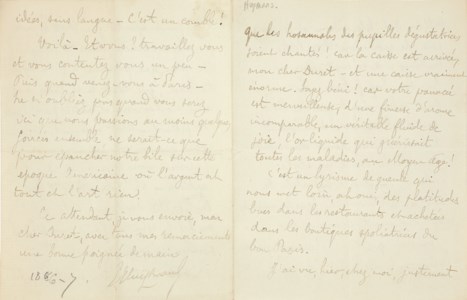 idées, sans langue - C'est un comble!
Voilà - Et vous? travaillez vous
et vous contentez vous, un peu -
Puis quand venez-vous à Paris -
ne m'oubliez pas quand vous serez
ici que nous passions au moins quelque
soirées ensemble ne serait-ce que
pour épancher notre bile sur cette
époque Américaine où l'argent est
tout et l'art rien!
En attendant, je vous envoie, mon
cher avec tous mes remerciements
une bonne poignée de mains
que les hosannahs des papilles dégustatrices
soient chantés! car la caisse est arrivée,
mon cher - et une caisse vraiment
énorme. Soyez béni! car votre
est merveilleux, d'une finesse d'arome
incomparable, un véritable fluide de
joie, l'or liquide qui guérissait
toutes les maladies, au Moyen Age!
C'est un lyrisme de gueule qui
nous met loin, ah oui, des platitudes
bues dans les restaurants et achetées
dans les boutiques spoliatrices du
bon Paris.
J'ai vu, hier, chez moi, justement